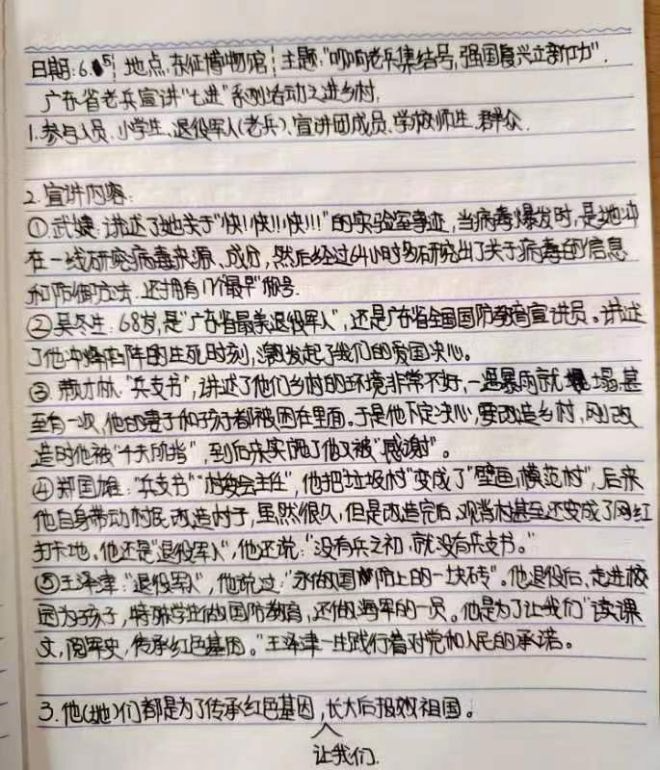 日期:6.5 地点:东征博物馆 主题:"响应老兵集结号,强国复兴立新功".
广东省老兵宣讲"七进"系列活动之进乡村.
1.参与人员.小学生、退役军人(老兵)、宣讲团成员、学校师生、群众.
2.宣讲内容:
①武婕:讲述了她关于"快!快!!快!!!"的实验室事迹,当病毒爆发时,是她冲
在一线研究病毒来源、成分,然后经过64小时多研究出了关于病毒的信息
和防御方法.还拥有17个"最早"称号.
②吴冬生:68岁,是"广东省最美退役军人",还是广东省全国国防教育宣讲员。讲述
了他冲锋陷阵的生死时刻,激发起了我们的爱国决心。
③ 才林."兵支书",讲述了他们乡村的环境非常不好,一遇暴雨就塌,甚
至有一次,他的妻子和孩子都被困在里面。于是他下定决心,要改造乡村,刚改
造时他被"千夫所指",到后来实现了他又被"感谢"。
④郑国雄:"兵支书""村委会主任",他把"垃圾村"变成了"壁画模范村",后来
他自身带动村民改造村子,虽然很久,但是改造完后,观背村甚至还变成了网红
打卡地。他还是"退役军人",他还说:"没有兵之初,就没有兵支书。"
⑤王泽津:"退役军人",他说过:"永做国防上的一块砖"。他退役后,走进校
园为孩子,特殊学生做国防教育,还做海军的一员。他是为了让我们"读课
文,阅军史,传承红色基因。"王泽津一生践行着对党和人民的承诺。
3.他(她)们都是为了传承红色基因,长大后报效祖国。
让我们.